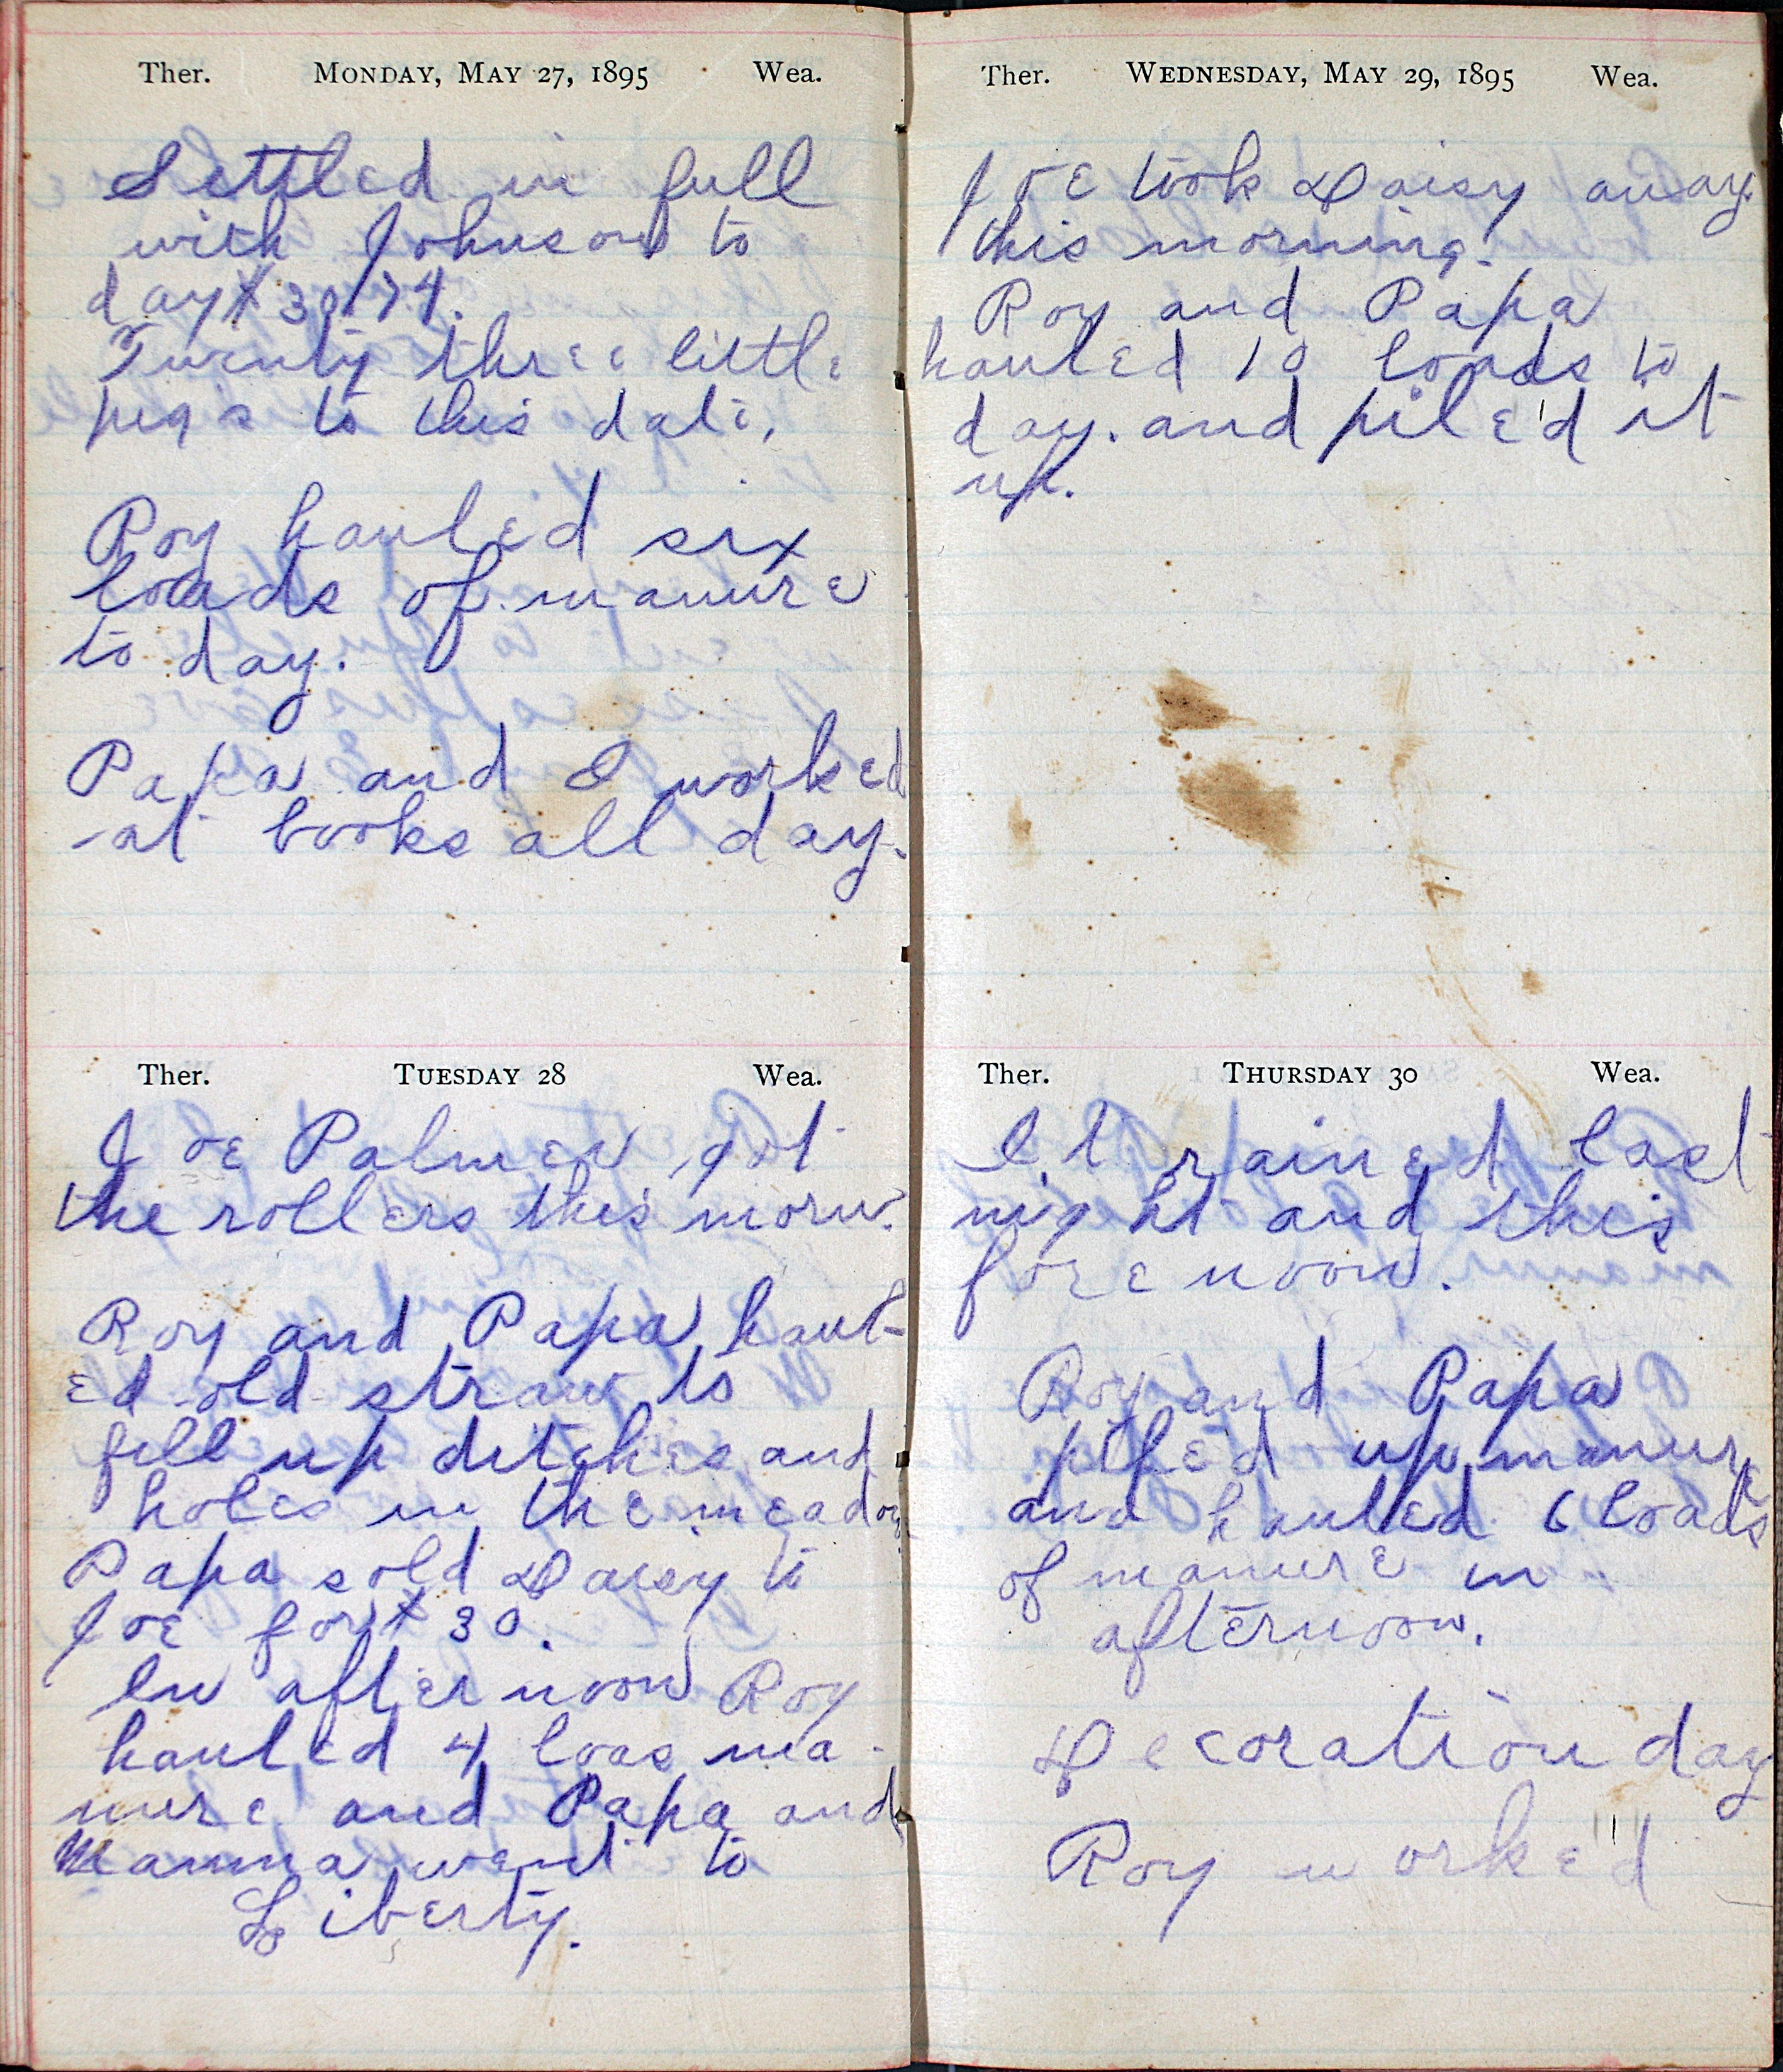 Ther. MONDAY, MAY 27, 1895 Wea.
Settled in full
with Johnson to
day $30.74.
Twenty three little
pigs to this date.
Roy hauled six
loads of manure
to day.
Papa and I worked
at books all day.
Ther. TUESDAY 28 Wea.
Joe Palmer got
the rollers this morn.
Roy and Papa haul-
ed old straw to
fill up ditches and
holes in the meadow
Papa sold Daisy to
Joe for $30.
In afternoon Roy
hauled 4 loas ma-
nure and Papa and
Mamma went to
Liberty.
Ther. WEDNESDAY, MAY 29, 1895 Wea.
Joe took Daisy away
this morning.
Roy and Papa
hauled 10 loads to
day. and pile'd it
up.
Ther. THURSDAY 30 Wea.
It rained last
night and this
forenoon.
Roy and Papa
pile'd up manure
and hauled 6 loads
of manure in
afternoon.
Decoration day
Roy worke'd